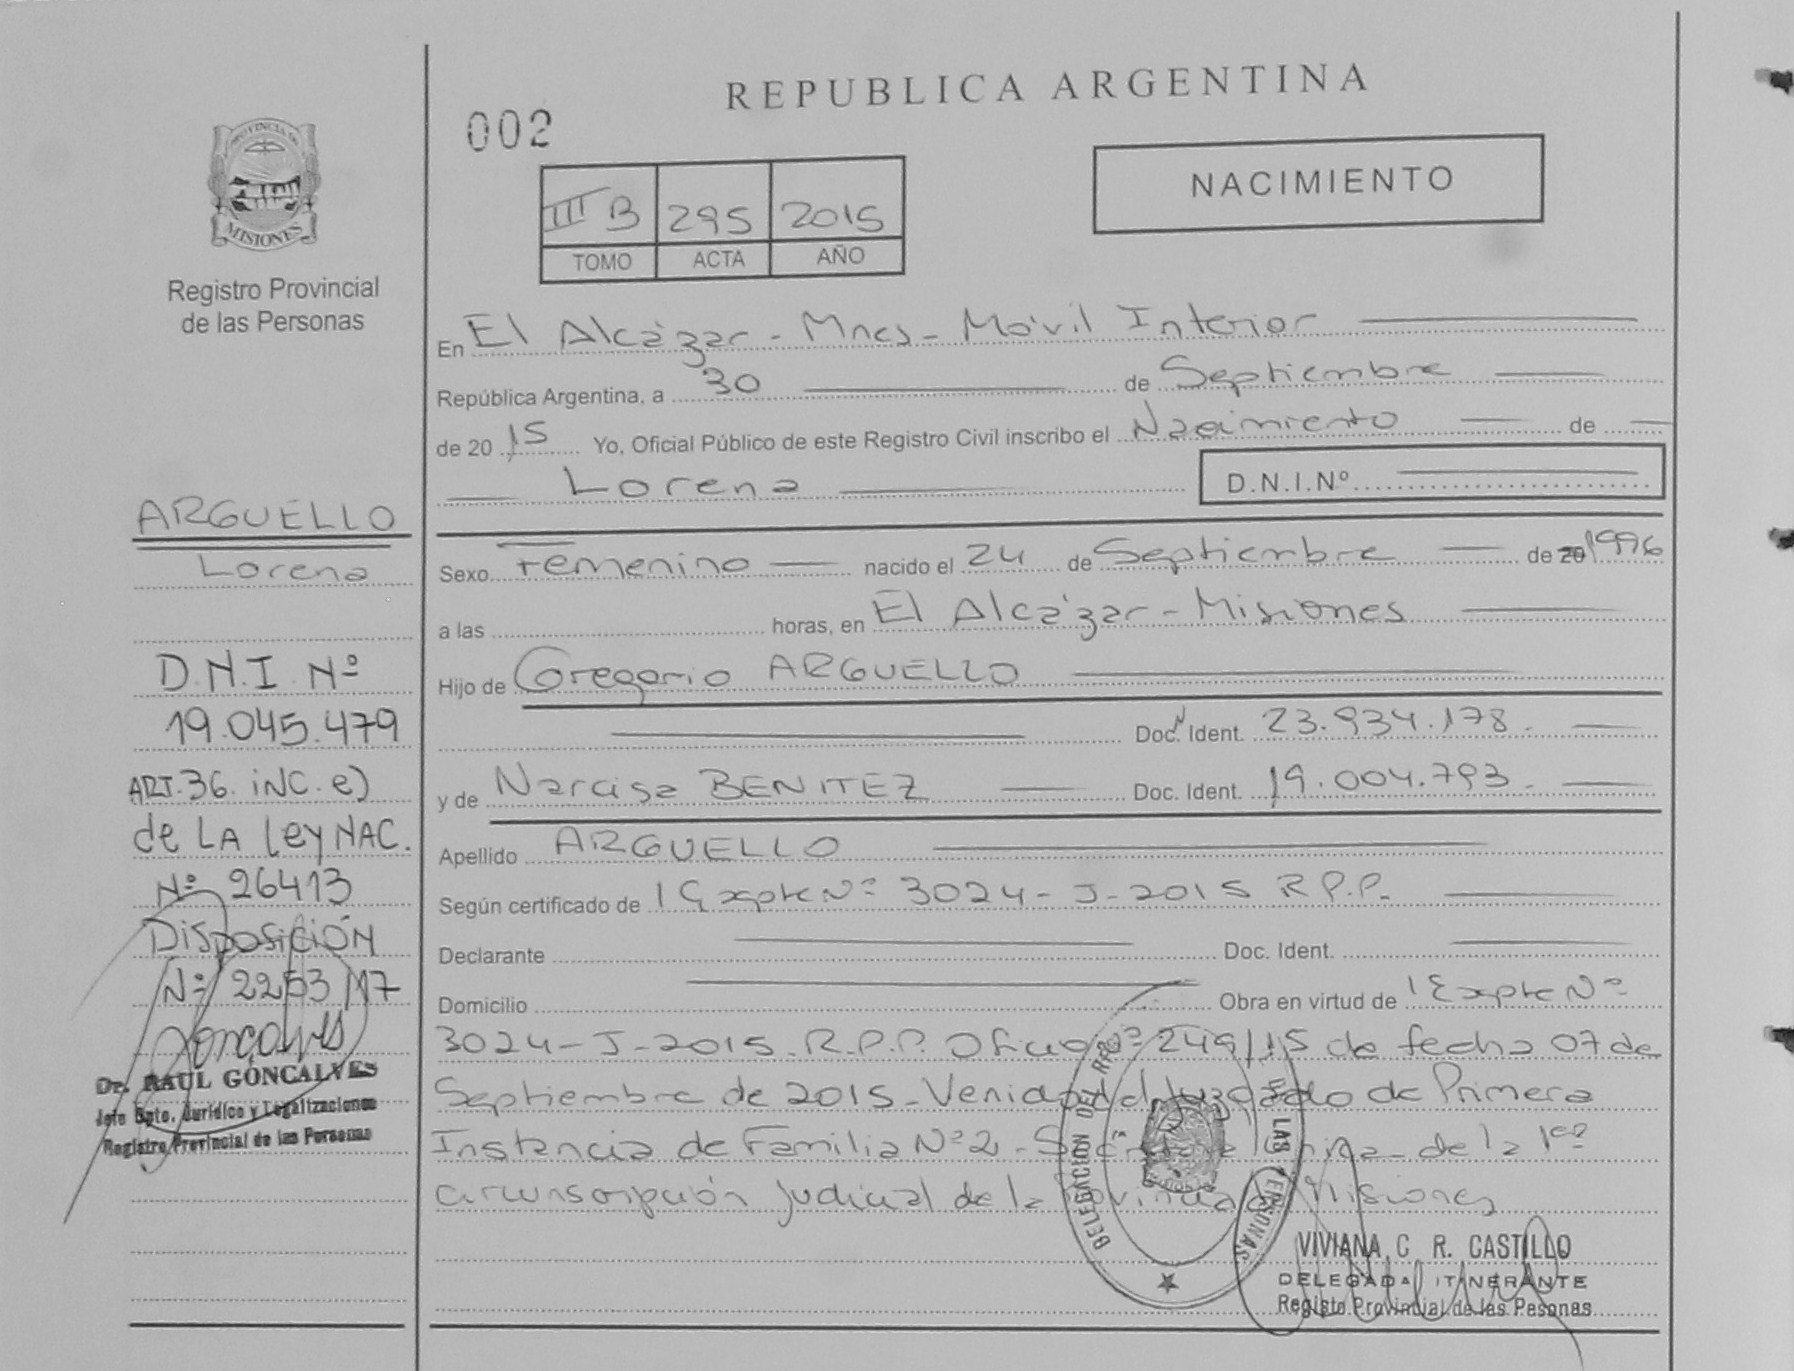 REPUBLICA ARGENTINA
002
NACIMIENTO
III B 295 2015
TOMO ACTA AÑO
PROVINCIA DE
MISIONES
Registro Provincial
de las Personas
En El Alcázar - Mnes - Móvil Interior
República Argentina, a 30 de Septiembre
de 20 15 Yo, Oficial Público de este Registro Civil inscribo el Nacimiento de
Lorena D.N.I.Nº
Sexo Femenino nacido el 24 de Septiembre de 20 1996
a las horas, en El Alcázar - Misiones
Hijo de Gregorio ARGUELLO
Doc. Ident. 23.934.178.
y de Narcisa BENITEZ Doc. Ident. 19.004.793.
Apellido ARGUELLO
Según certificado de Expte Nº 3024 - J - 2015 R.P.P.
Declarante Doc. Ident.
Domicilio Obra en virtud de Expte Nº
3024 - J - 2015. R.P.P. Oficio Nº 249/15 de fecha 07 de
Septiembre de 2015 - Venida del Juzgado de Primera
Instancia de Familia Nº 2 - Única - de la 1ra
circunscripción Judicial de la Provincia de Misiones
DELEGACION DEL DE LAS PERSONAS
VIVIANA C. R. CASTILLO
DELEGADA ITINERANTE
Registo Provincial de las Pesonas
ARGUELLO
Lorena
D.N.I. Nº
19.045.479
ART. 36. iNC. e)
de LA Ley NAC.
Nº 26413
DISPOSICIÓN
Nº 2253/17
Gonçalves
Dr. RAUL GONCALVES
Jefe Dpto. Jurídico y Legalizaciones
Registro Provincial de las Personas